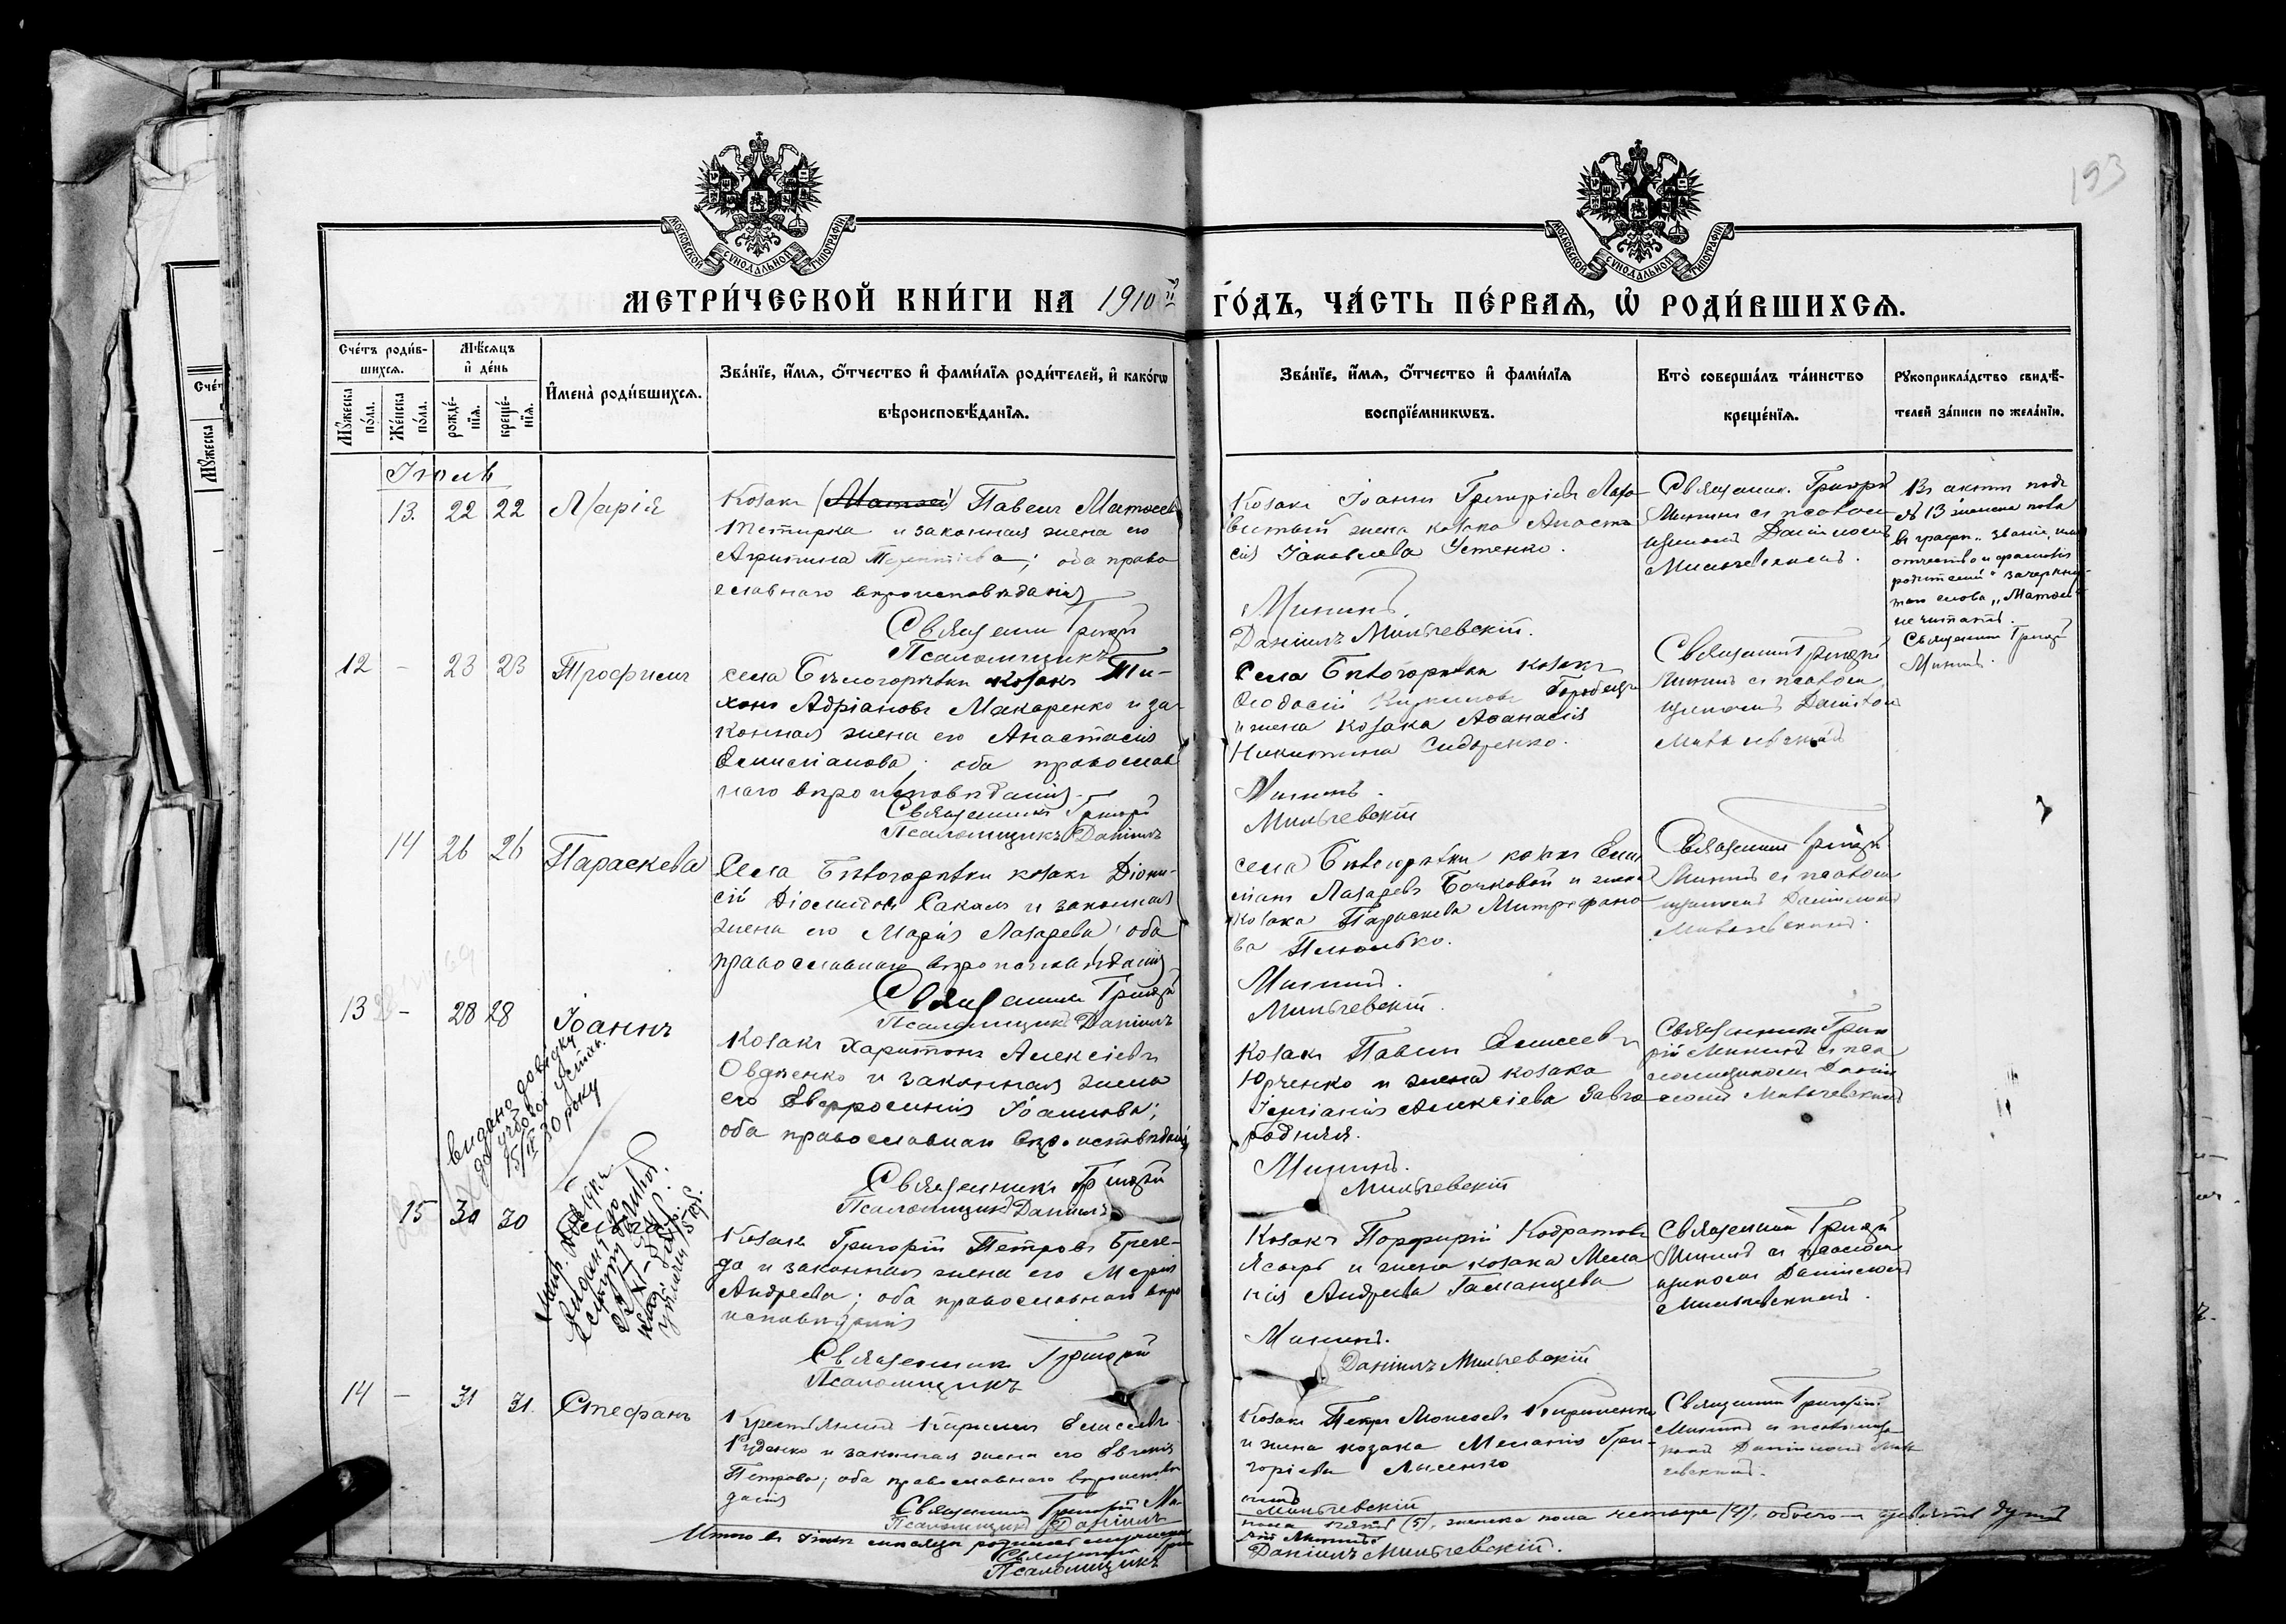 193
МОСКОВСКОЙ СѴНОДАЛЬНОЙ ТИПОГРАФІИ
МОСКОВСКОЙ СѴНОДАЛЬНОЙ ТИПОГРАФІИ
МЕТРИ́ЧЕСКОЙ КНИ́ГИ НА 1910 й ГО́ДЪ, ЧА́СТЬ ПЕ́РВАЯ, Ѡ РОДИ́ВШИХСЯ.
Сче́тъ роди́в-
шихся.
Мꙋ́жеска по́ла.
Же́нска по́ла.
Мѣ́сяцъ
и де́нь
рожде́-
нїя.
креще́-
нїя.
И҆мена̀ роди́вшихся.
Зва́нїе, и҆́мя, о҆́тчество и҆ фами́лїя роди́телей, и҆ како́гѡ
вѣроисповѣ́данїя.
Зва́нїе, и҆́мя, о҆́тчество и҆ фами́лїя
воспрїе́мникѡвъ.
Кто̀ соверша́лъ та́инство
креще́нїя.
Рꙋкоприкла́дство свидѣ́-
телей за́писи по жела́нїю.
Іюль
13. 22 22 Марія
Козакъ (Матвей) Павелъ Матвеевъ
Тетирка и законная жена его
Агрипина Терентіева; оба право
славнаго вѣроисповѣданія
Священн Григорій
Псаломщикъ
Козакъ Іоаннъ Григоріевъ
жена козака Анаста
сія Іаковлева Устенко.
Мининъ.
Даніилъ Мильчевскій.
Священник Григорій
Мининъ съ псаломщ
щикомъ Даніиломъ
Мильчевскимъ.
Въ актѣ подъ
№ 13 женска пола
въ графѣ „званіе, имя
отчество и фамилія
родителей“ зачеркну-
таго слова „Матвей“
не читать.
Священн Григорій
Мининъ.
12 - 23 23 Трофимъ
села Бѣлогорѣлки козакъ Ти-
хонъ Адріановъ Макаренко и за-
конная жена его Анастасія
Емиліанова; оба православ
наго вѣроисповѣданія.
Священникъ Григорій
Псаломщикъ Даніилъ
Села Бѣлогорѣлки козакъ
Ѳеодосій Горобецъ
и жена козака Аѳанасія
Никитина Сидоренко.
Мининъ.
Мильчевскій
Священникъ Григорій
Мининъ съ псалом
щикомъ Даніилом
Мильчевскимъ
14 26 26 Параскева
Села Бѣлогорѣлки козакъ Діони-
сій Діомидовъ Сакалъ и законная
жена его Марія Лазарева; оба
православнаго вѣроисповѣданія
Священникъ Григорій
Псаломщикъ Даніилъ
села Бѣлогорѣлки козакъ Еми
ліанъ Лазаревъ Бочковой и жена
козака Параскева Митрофано
ва
Мининъ.
Мильчевскій.
Священникъ Григорій
Мининъ съ псалом
щикомъ Даніиломъ
Мильчевскимъ.
13 - 28 28 Іоаннъ
Козакъ Харитонъ Алексіевъ
Овдіенко и законная жена
его Евфросинія Іоаннова;
оба православнаго вѣроисповѣданія
Священникъ Григорій
Псаломщикъ Даніилъ
Козакъ Павелъ Елисеевъ
Юрченко и жена козака
Іуліанія Алексіева Заво
родняя.
Мининъ.
Мильчевскій
Священникъ Григо
рій Мининъ съ пса
ломщикомъ Даніи
ломъ Мильчевскимъ
видано довідку
до учбової устан.
15/IV 30 року
15 30 30
Козакъ Григорій Петровъ Бреге-
да и законная жена его Марія
Андреева; оба православнаго вѣро
исповѣданія
Священникъ Григорій
Псаломщикъ
Козакъ Порфирій Кодратовъ
Ясырь и жена козака Мела
нія Андреева Гаманцева
Мининъ.
Даніилъ Мильчевскій
Священникъ Григорій
Мининъ съ псалом
щикомъ Даніиломъ
Мильчевскимъ.
14 - 31 31. Стефанъ
Крестьянинъ Кириллъ Елисеевъ
Руденко и законная жена его Евгенія
Петрова; оба православнаго вѣроисповѣ
данія
Священникъ Григорій Ми-
Псаломщикъ Даніилъ
Козакъ Петръ Моисеевъ Кириченко
и жена козака Меланія Гри-
горіева Лысенко
нинъ
Мильчевскій
Священникъ Григорій
Мининъ съ псаломщи
комъ Даніиломъ Миль
чевскимъ.
Итого въ Іюлѣ мѣсяцѣ родилось мужеска пола пять (5), женска пола четыре (4), обоего — девять душъ
Священникъ Григорій Мининъ
Псаломщикъ Даніилъ Мильчевскій.